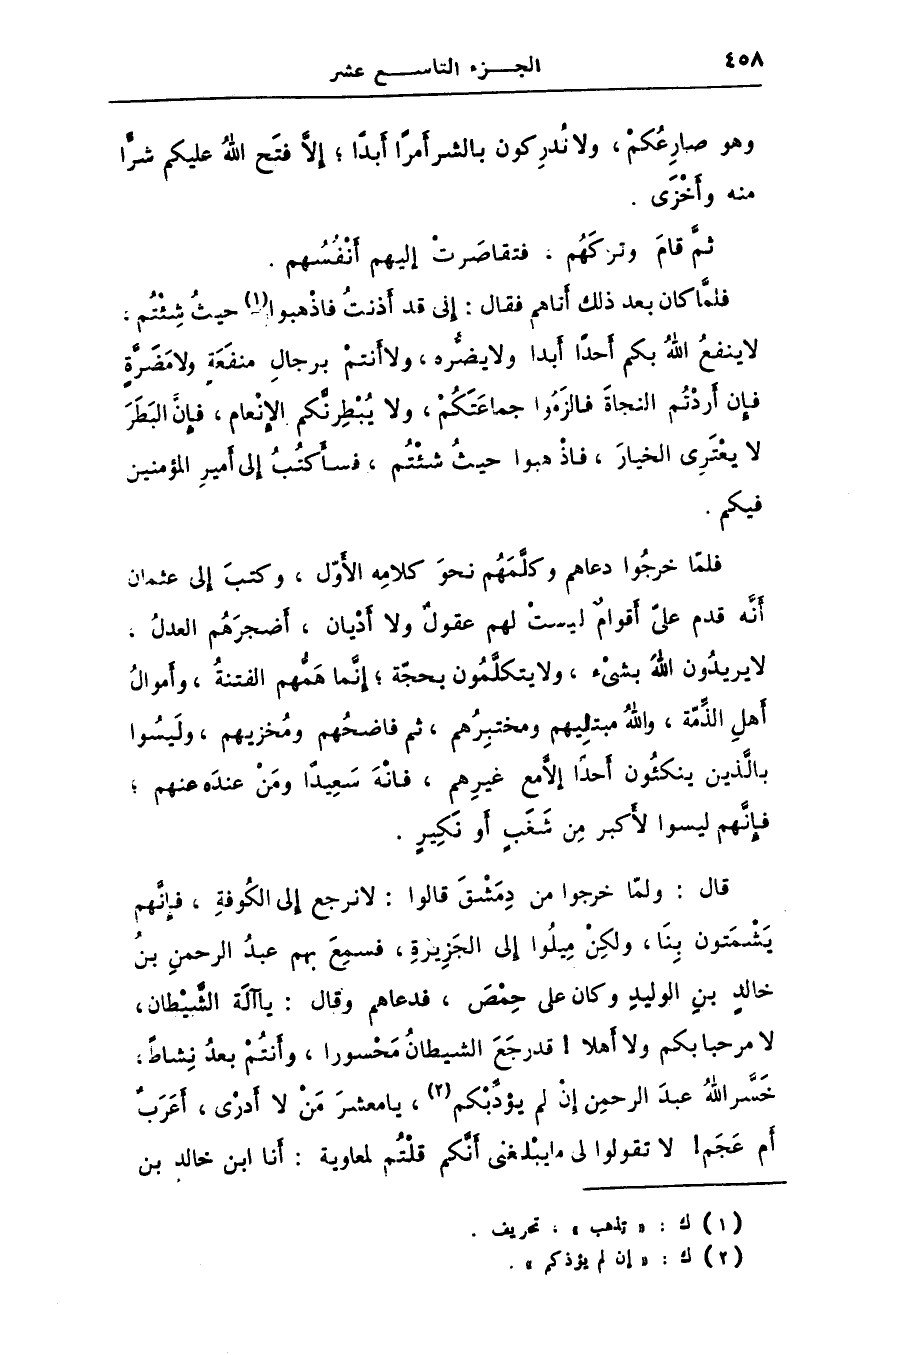 ٤٥٨
الجـــزء التاســـع عشر
وهو صارِعُكمْ ، ولا تُدرِكون بالشر أَمرًا أَبدًا ؛ إلاَّ فتَح اللهُ عليكم شرًّا
منه وأَخْزَى .
ثمَّ قامَ وتركَهُم ، فتقاصَرتْ إليهم أَنْفُسُهم .
فلمَّا كان بعد ذلك أتاهم فقال : إنى قد أذنتُ فاذْهبوا(١) حيثُ شِئْتُم ،
لاينفعُ اللهُ بكم أَحدًا أبدا ولايضُّره ، ولا أنتمْ برجالِ منفَعَةٍ ولامَضَرَّةٍ
فإن أَردْتُم النجاةَ فالزَمُوا جماعَتَكُمْ ، ولا يُبْطِرنَّكم الإِنْعام ، فإنَّ البَطَرَ
لا يعْتَرِى الخيارَ ، فاذهبوا حيثُ شئْتُم ، فسأَكتُبُ إلى أَميرِ المؤمنين
فيكم .
فلمّا خرجُوا دعاهم وكلَّمَهُم نحوَ كلامِه الأَوّل ، وكتبَ إلى عثمان
أَنَّه قدم علىّ أَقوامٌ ليستْ لهم عقولٌ ولا أَدْيان ، أَضجرَهُم العدلُ ،
لايريدُون اللهَ بشىْء ، ولايتكلَّمُون بحجّة ؛ إنَّما هَمُّهم الفتنةُ ، وأَموالُ
أَهلِ الذِّمّة ، واللهُ مبتلِيهم ومختبِرُهم ، ثم فاضحُهم ومُخزيهم ، ولَيسُوا
بالَّذين ينكئُون أَحدًا إلاَّمع غيرِهم ، فانْهَ سَعِيدًا ومَنْ عندَه عنهم ؛
فإنَّهم ليسوا لأَكبر مِن شَغَبٍ أَو نَكِيرٍ .
قال : ولمّا خرجوا من دِمَشْقَ قالوا : لانرجع إلى الكُوفةِ ، فإنَّهم
يَشْمَتون بِنَا ، ولكِنْ مِيلُوا إلى الجَزِيرةِ ، فسمِعَ بهم عبدُ الرحمنِ بنُ
خالدِ بنِ الوليدِ وكان على حِمْصَ ، فدعاهم وقال : ياآلَة الشَّيْطان ،
لا مرحبا بكم ولا أهلا ! قدرجَعَ الشيطانُ مَحْسورا ، وأَنتُمْ بعدُ نِشاطٌ ؛
خَسَّر اللهُ عبدَ الرحمنِ إنْ لم يؤدِّبْكم(٢) ، يامعشرَ مَنْ لا أدرْى ، أَعَرَبٌ
أم عَجَم ! لا تقولوا لى مايبْلغنى أَنَّكم قلْتُم لمعاوية : أنا ابن خالدِ بن
(١) ك : « تذهب » ، تحريف .
(٢) ك : « إن لم يؤذكم » .